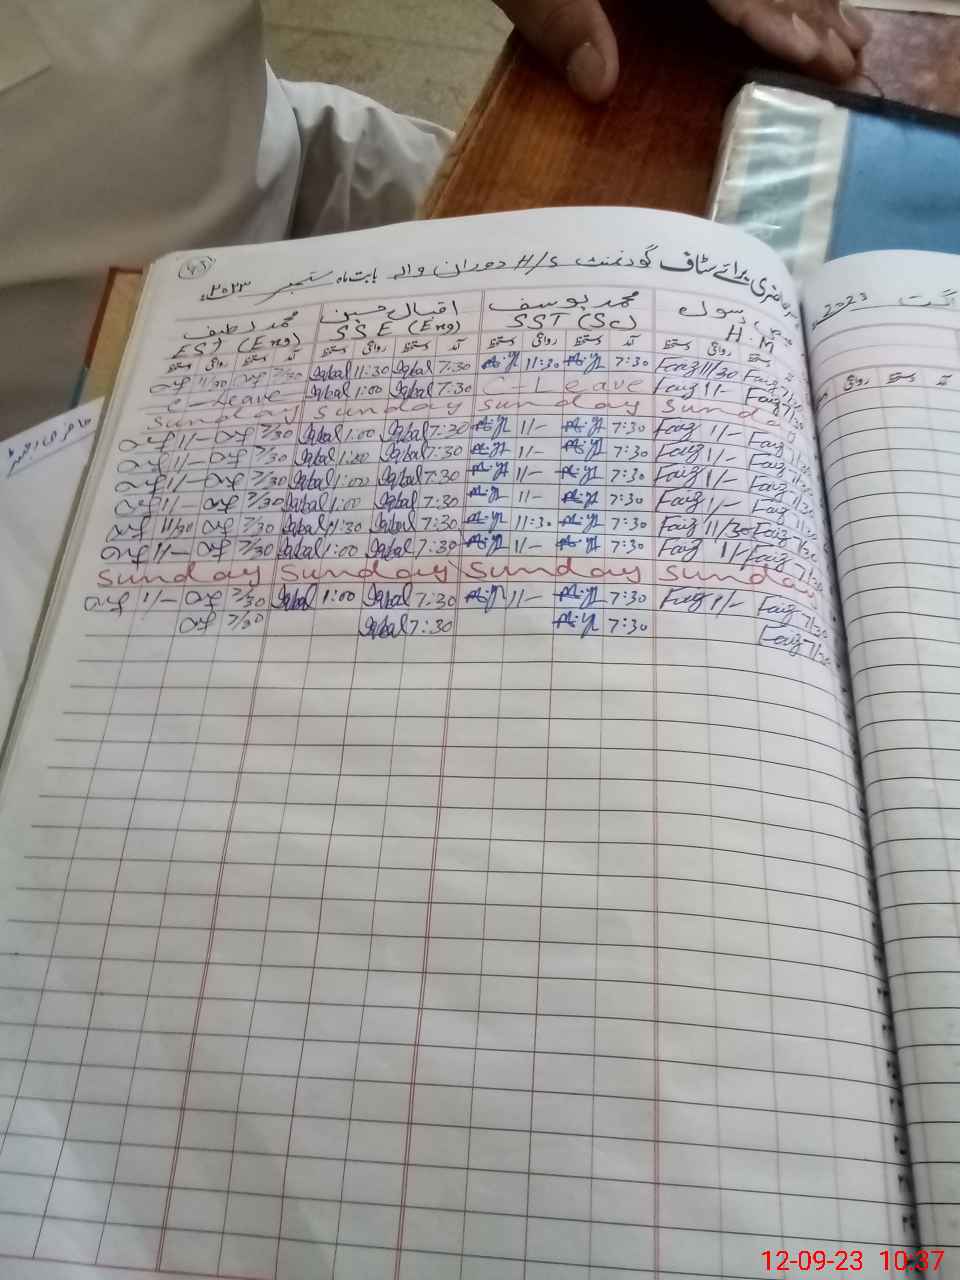 45
حاضری برائے سٹاف گورنمنٹ H/S دوران والہ بابت ماہ ستمبر ۲۰۲۳ء
رسول محمد یوسف اقبال حسین محمد لطیف
H.M SST (Sc) SSE (Eng) EST (Eng)
آمد دستخط روانگی دستخط آمد دستخط روانگی دستخط آمد دستخط روانگی دستخط آمد دستخط روانگی دستخط
11/30 7/30 Iqbal 11:30 Iqbal 7:30 11:30 7:30 Faiz 11/30 Faiz 7/30
C-Leave Iqbal 1:00 Iqbal 7:30 C-Leave Faiz 1/- Faiz 7/30
Sunday Sunday Sunday Sunday
1/- 7/30 Iqbal 1:00 Iqbal 7:30 1/- 7:30 Faiz 1/- Faiz 7/30
1/- 7/30 Iqbal 1:00 Iqbal 7:30 1/- 7:30 Faiz 1/- Faiz 7/30
1/- 7/30 Iqbal 1:00 Iqbal 7:30 1/- 7:30 Faiz 1/- Faiz 7/30
1/- 7/30 Iqbal 1:00 Iqbal 7:30 1/- 7:30 Faiz 1/- Faiz 7/30
11/30 7/30 Iqbal 11:30 Iqbal 7:30 11:30 7:30 Faiz 11/30 Faiz 7/30
1/- 7/30 Iqbal 1:00 Iqbal 7:30 1/- 7:30 Faiz 1/- Faiz 7/30
Sunday Sunday Sunday Sunday
1/- 7/30 Iqbal 1:00 Iqbal 7:30 1/- 7:30 Faiz 1/- Faiz 7/30
7/30 Iqbal 7:30 7:30 Faiz 7/30
2023
آمد دستخط روانگی
12-09-23 10:37